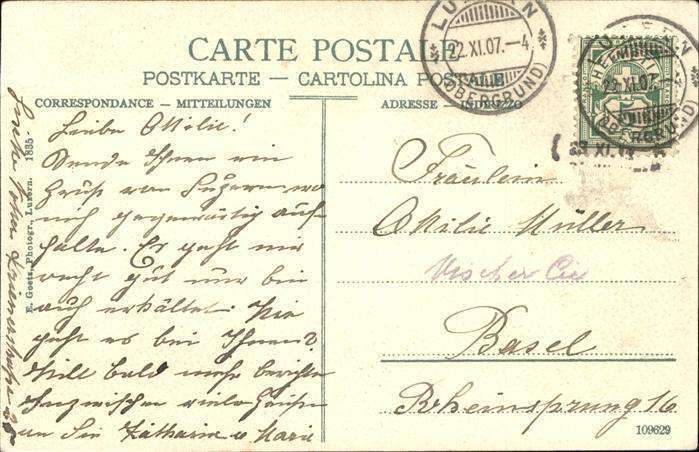 CARTE POSTALE
POSTKARTE – CARTOLINA POSTALE
CORRESPONDANCE – MITTEILUNGEN
ADRESSE – INDIRIZZO
LUZERN
22.XI.07.–4
(OBERGRUND)
22.XI.07.
(OBERGRUND)
Liebe Otilie!
Sende Ihnen ein
Gruss von Luzern wo
mich gegenwärtig auf-
halte. Es geht mir
recht gut nur bin
auch erkältet. Wie
geht es bei Ihnen?
Will bald mehr berichten
Inzwischen viele Grüsse
an Sie Katharin u Marie
Fräulein
Otilie Müller
Vischer Cie
Basel
Rheinsprung 16
E. Goetz, Photogr., Luzern. 1835.
109629